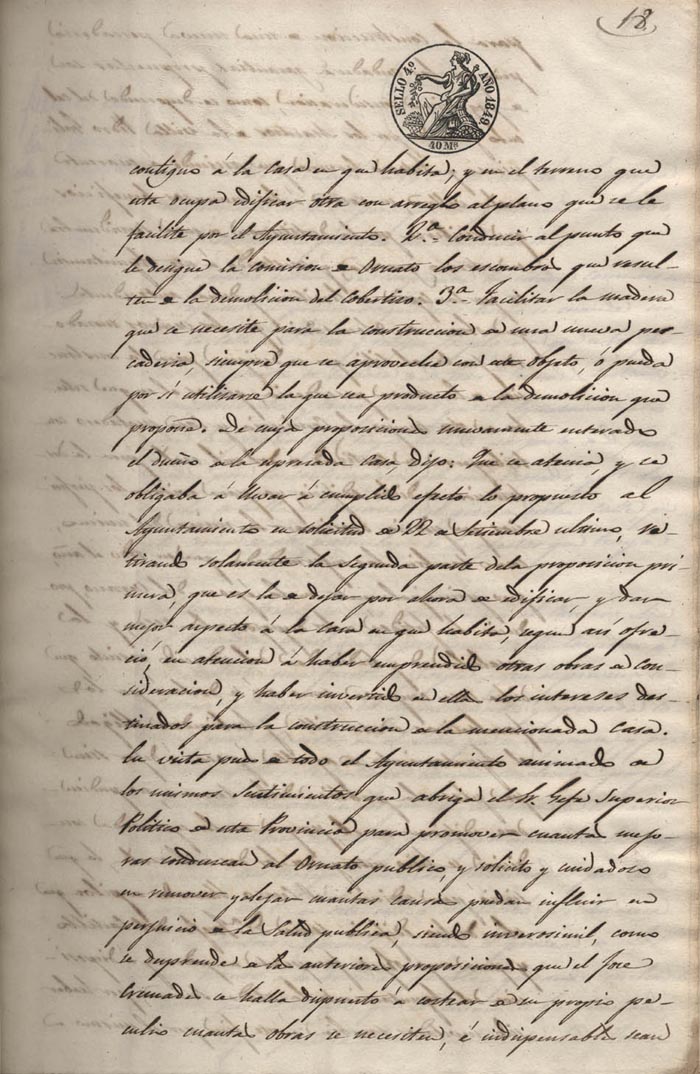 18.
SELLO 4.º AÑO 1849.
40 Ms
contiguo á la Casa en que habita; y en el terreno que
esta ocupa edificar otra con arreglo al plano que se le
facilite por el Ayuntamiento. 2.ª Conducir al punto que
le designe la Comision de Ornato los escombros que resul-
ten de la demolicion del Cobertizo. 3.ª facilitar la madera
que se necesite para la construccion de una nueva pes-
caderia, siempre que se aproveche con este objeto, ó pueda
por sí utilizarse la que sea producto de la demolicion que
propone. De cuyas proposiciones nuevamente enterado
el dueño de la expresada Casa dijo: Que se atenia, y se
obligaba á llevar á cumplido efecto lo propuesto al
Ayuntamiento en solicitud de 22 de Setiembre ultimo, re-
tirando solamente la segunda parte dela proposicion pri-
mera, que es la de dejar por ahora de edificar, y dar
mejor aspecto á la Casa en que habita, segun asi ofre-
ció, en atencion á haber emprendido otras obras de con-
sideracion, y haber invertido en ellas los intereses des-
tinados para la construccion de la mencionada Casa.
En vista pues de todo el Ayuntamiento animado de
los mismos sentimientos que abriga el Sr. Gefe Superior
Politico de esta Provincia para promover cuantas mejo-
ras conduzcan al Ornato publico, y solicito y cuidadoso
en remover y alejar cuantas causas puedan influir en
perjuicio de la Salud publica, siendo inverosimil, como
se desprende de las anteriores proposiciones que el Jose
se halla dispuesto á costear de su propio pe-
culio cuantas obras se necesiten, é indispensables sean